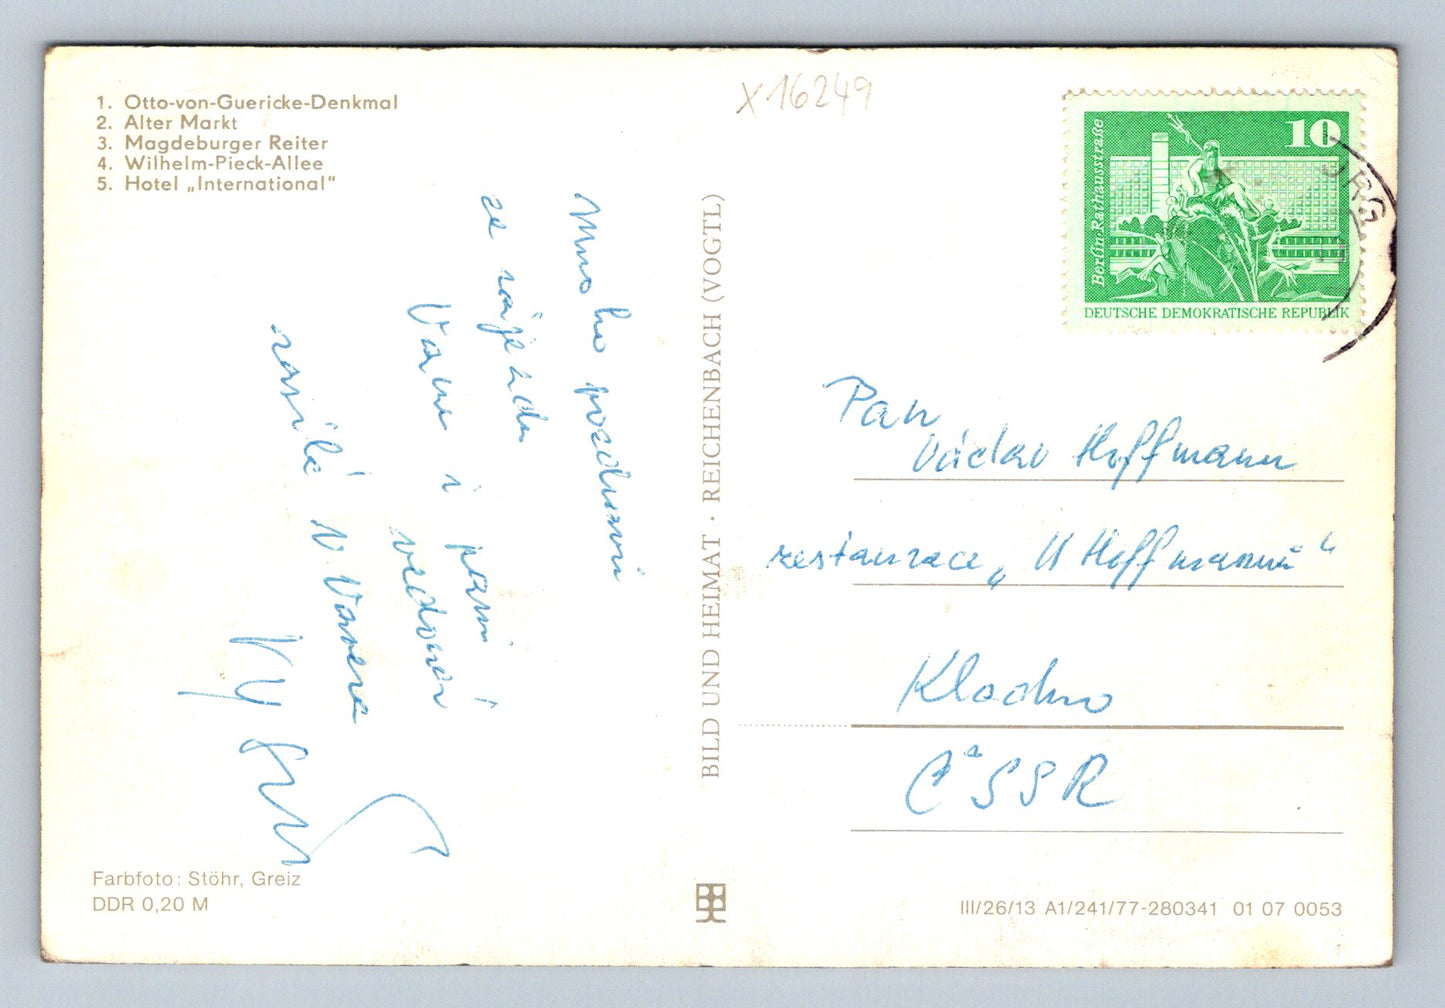 1. Otto-von-Guericke-Denkmal
2. Alter Markt
3. Magdeburger Reiter
4. Wilhelm-Pieck-Allee
5. Hotel „International“
X16249
Mnoho pozdravů
ze zájezdu
Vám i paní
vedoucí
zasílá V.
BILD UND HEIMAT · REICHENBACH (VOGTL)
10
Berlin · Rathausstraße
DEUTSCHE DEMOKRATISCHE REPUBLIK
Pan
Václav Hoffmann
restaurace „U Hoffmannů“
Kladno
ČSSR
Farbfoto: Stöhr, Greiz
DDR 0,20 M
III/26/13 A1/241/77-280341 01 07 0053